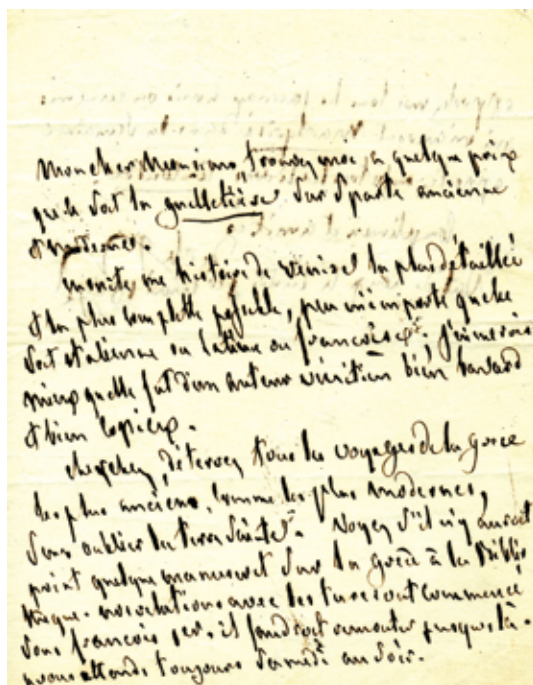 Mon cher Monsieur trouvez moi, a quelque prix
que ce soit la guilletière sur Sparte ancienne
et moderne.
ensuite, une histoire de Venise la plus détaillée
et la plus complette possible, peu m'importe quelle
soit italienne ou latine ou françoise. j'aimerois
mieux quelle fut d'un auteur vénitien bien bavard
et bien copieux.
cherchez, déterrez tous les voyages de la grece
les plus anciens, comme les plus modernes,
sans oublier la terre sainte. Voyez s'il n'y auroit
point quelque manuscrit sur la grèce à la Biblio
thèque. nos relations avec les turcs ont commencé
sous francois 1er. il faudroit remonter jusque là.
vous attends toujours Samedi au soir.